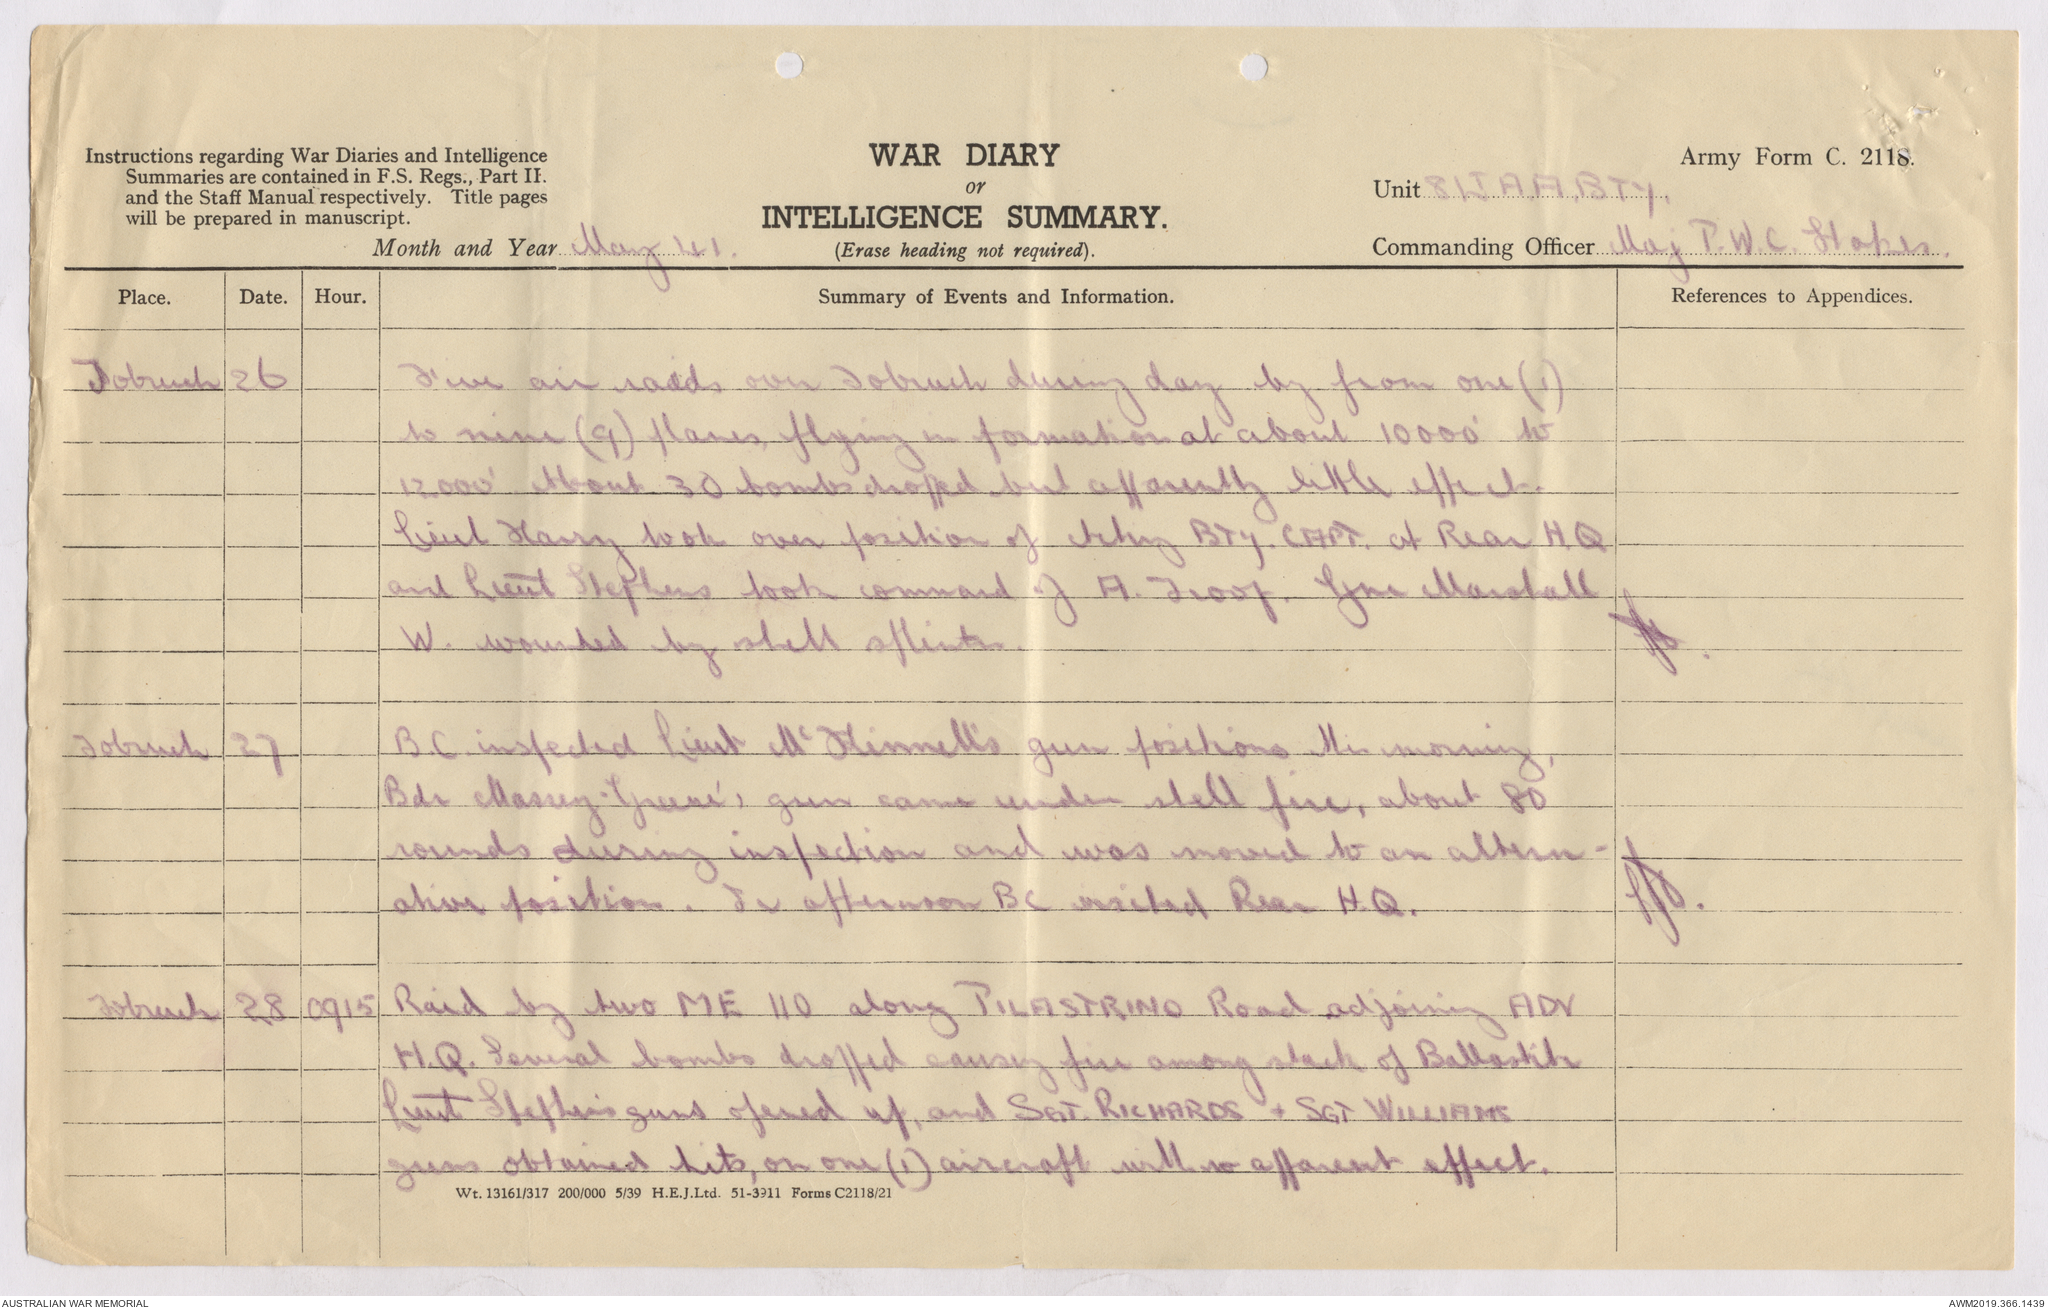 WAR DIARY
or
INTELLIGENCE SUMMARY.
(Erase heading not required).
Instructions regarding War Diaries and Intelligence
Summaries are contained in F.S. Regs., Part II.
and the Staff Manual respectively. Title pages
will be prepared in manuscript.
Month and Year May 41.
Army Form C. 2118.
Unit 8 LT A.A. BTY.
Commanding Officer Maj P.W.C. Stokes.
Place. Date. Hour. Summary of Events and Information. References to Appendices.
Tobruch 26 Five air raids over Tobruch during day by from one (1)
to nine (9) planes, flying in formation at about 10000' to
12000' About 30 bombs dropped but apparently little effect.
Lieut Harry took over position of BTY. CAPT. at Rear H.Q
and Lieut Stephens took command of A. Troop. Gnr Marshall
W. wounded by shell splinter.
Tobruch 27 B.C. inspected Lieut gun positions this morning,
Bdr Massey-Greene's gun came under shell fire, about 80
rounds during inspection and was moved to an altern-
ative position. In afternoon BC visited Rear H.Q.
Tobruch 28 0915 Raid by two ME 110 along PILASTRINO Road adjoining ADV
H.Q. Several bombs dropped causing fire among stack of Ballastite
Lieut Stephens guns opened up, and SGT. RICHARDS + SGT WILLIAMS
guns obtained hits, on one (1) aircraft with no apparent effect.
Wt. 13161/317 200/000 5/39 H.E.J.Ltd. 51-3911 Forms C2118/21
AUSTRALIAN WAR MEMORIAL
AWM2019.366.1439